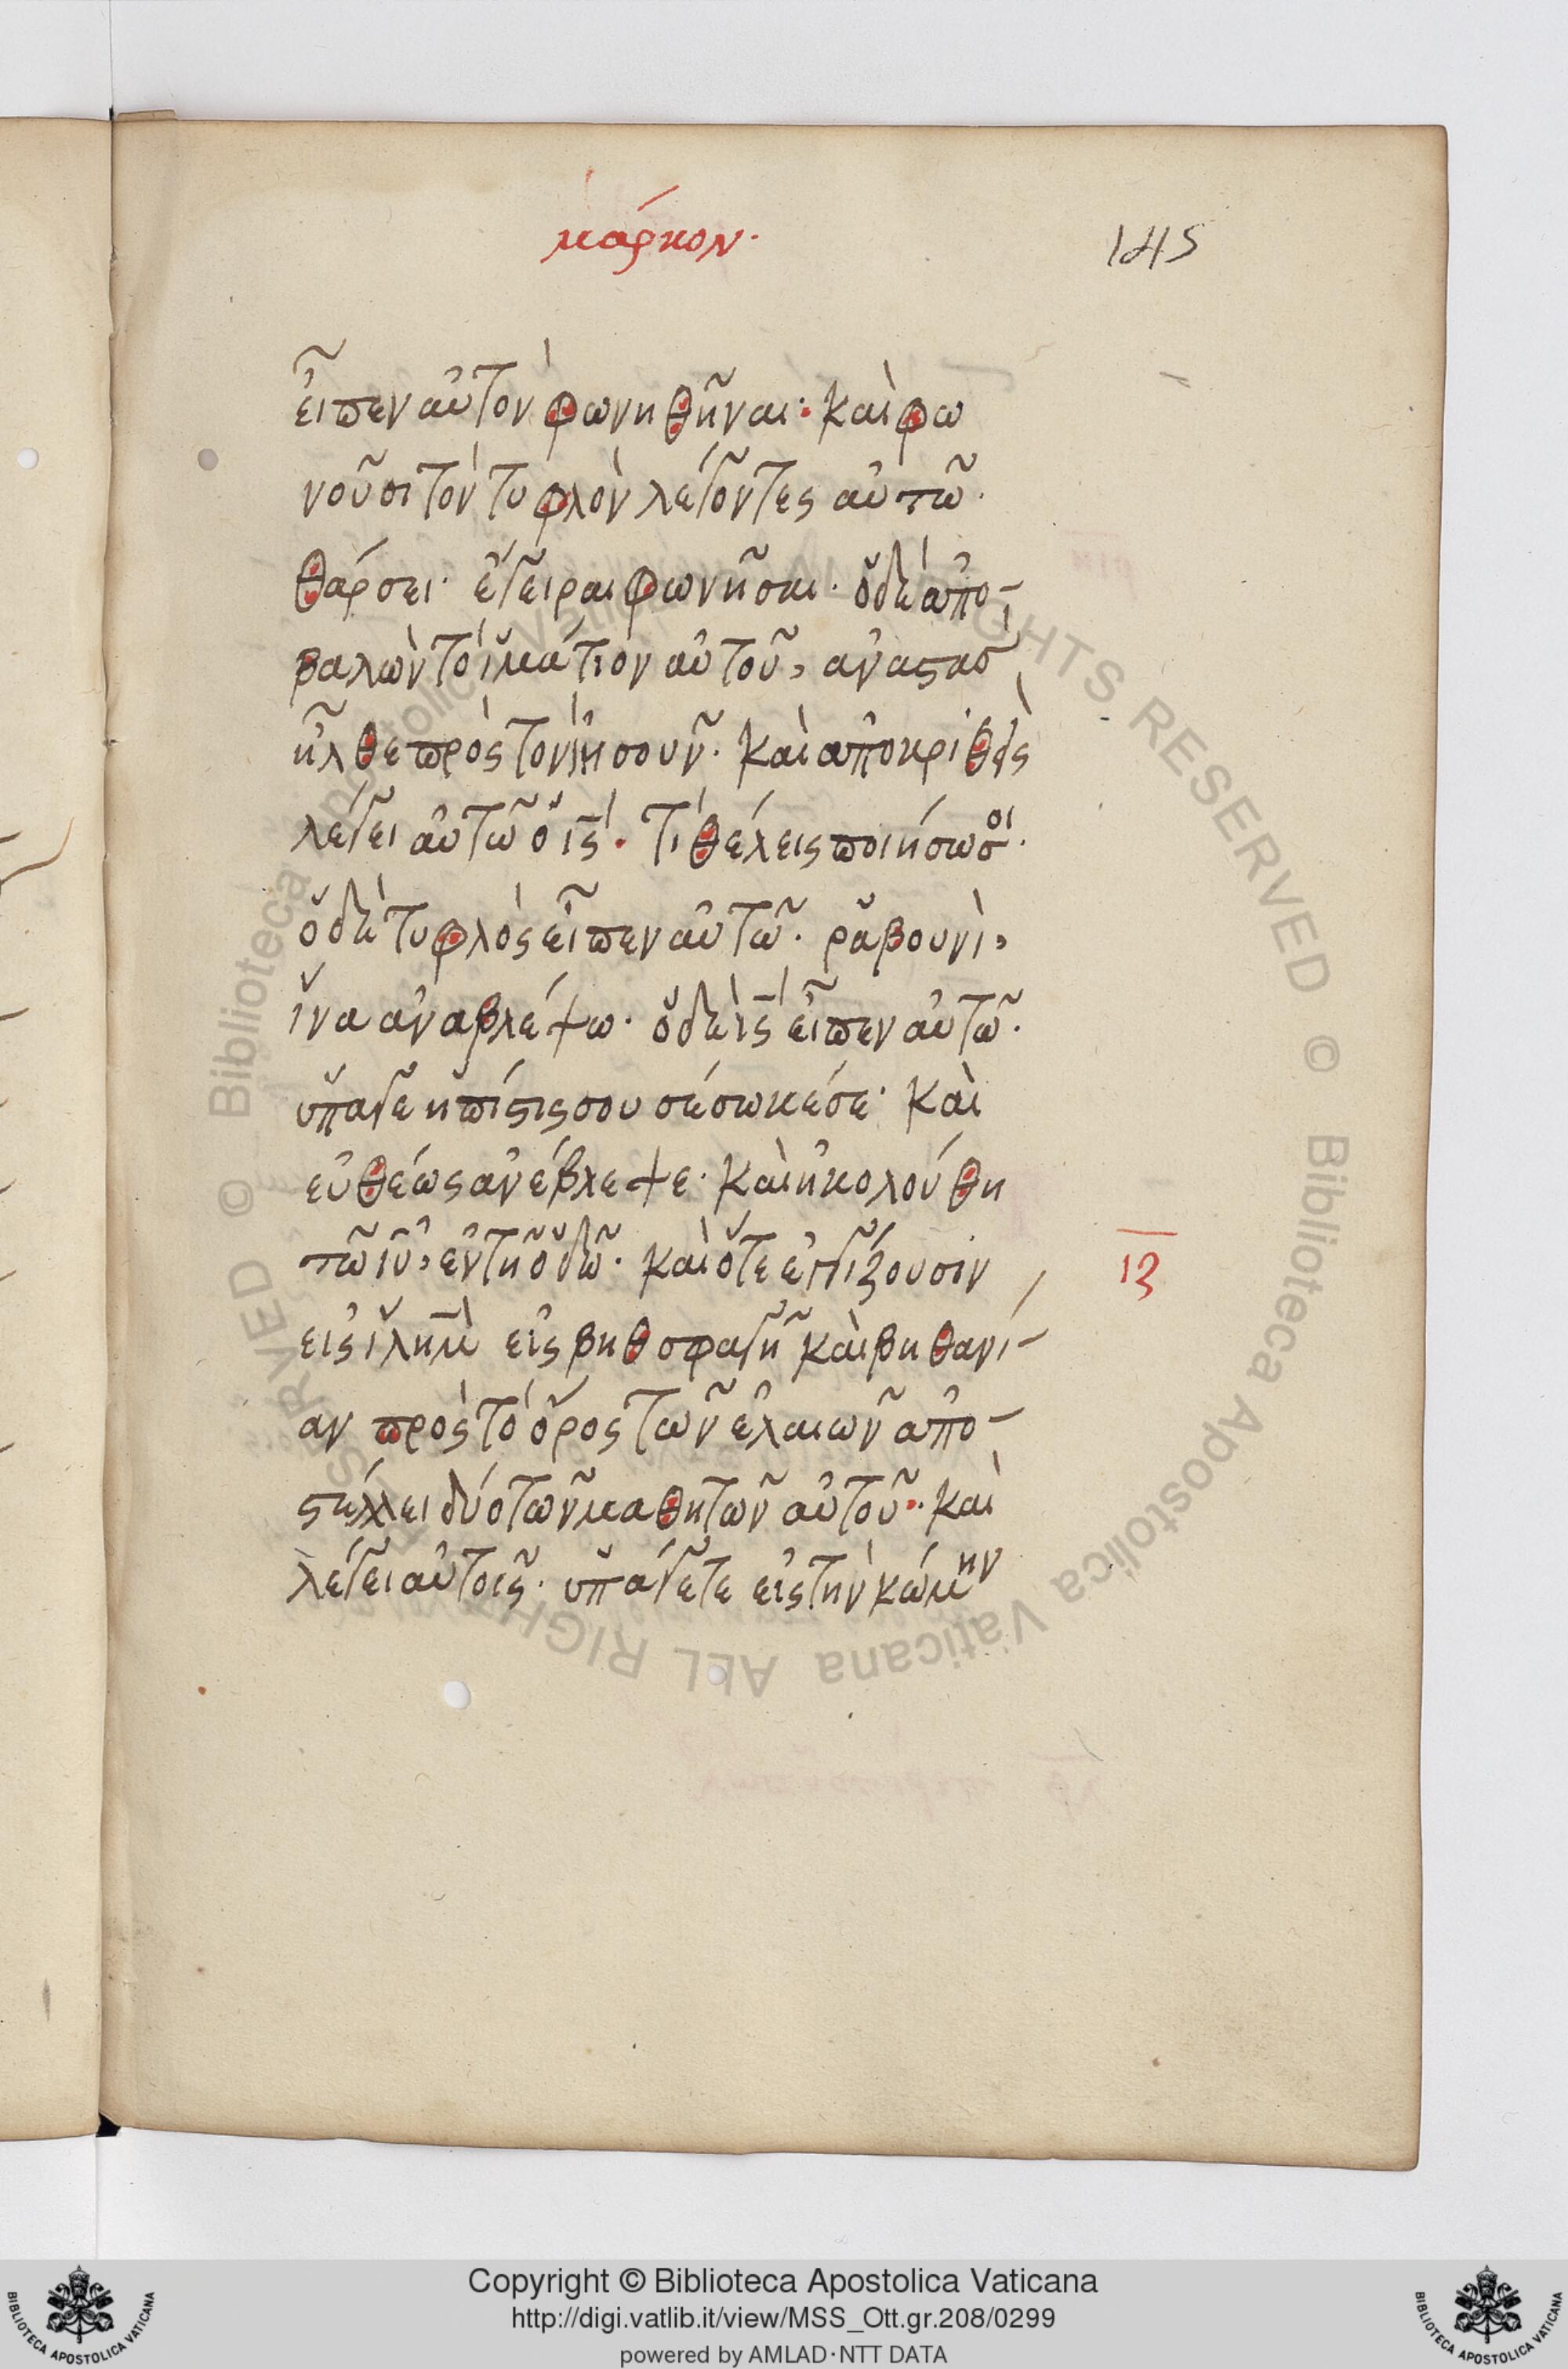 μάρκον.
145
εἶπεν αὐτὸν φωνηθῆναι· καὶ φω
νοῦσι τὸν τυφλὸν λέγοντες αὐτῶ.
θάρσει· ἔγειραι φωνῆσαι. ὁ δὲ ἀπο-
βαλὼν τὸ ἱμάτιον αὐτοῦ, ἀναστὰσ
ἦλθε πρὸς τὸν ἰησοῦν. καὶ ἀποκριθεὶς
λέγει αὐτῶ ὁ ις. τί θέλεις ποιήσω σοί.
ὁ δὲ τυφλὸς εἶπεν αὐτῶ. ῥαβουνὶ,
ἵνα ἀναβλέψω. ὁ δὲ ις εἶπεν αὐτῶ.
ὕπαγε ἡ πίστις σου σέσωκέ σε· καὶ
εὐθέως ἀνέβλεψε. καὶ ἠκολούθη
τῶ ιυ, ἐν τῆ ὁδῶ. καὶ ὅτε ἐγγίζουσιν
εἰς ιλημ εἰς βηθσφαγῆ καὶ βηθανί-
αν πρὸς τὸ ὄρος τῶν ἐλαιῶν ἀπο-
στέλλει δύο τῶν μαθητῶν αὐτοῦ. καὶ
λέγει αὐτοῖς. ὑπάγετε εἰς τὴν κώμην
Copyright © Biblioteca Apostolica Vaticana
http://digi.vatlib.it/view/MSS_Ott.gr.208/0299
powered by AMLAD·NTT DATA